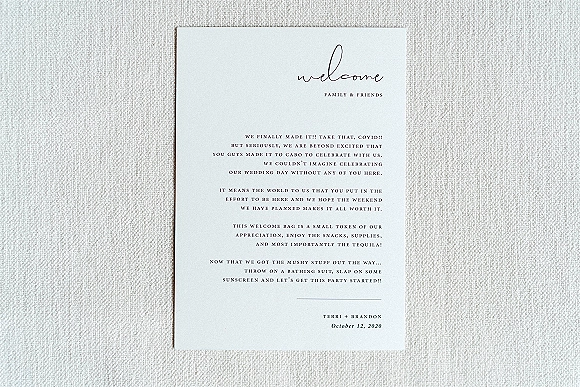 welcome
FAMILY & FRIENDS
WE FINALLY MADE IT!! TAKE THAT, COVID!!
BUT SERIOUSLY, WE ARE BEYOND EXCITED THAT
YOU GUYS MADE IT TO CABO TO CELEBRATE WITH US.
WE COULDN'T IMAGINE CELEBRATING
OUR WEDDING DAY WITHOUT ANY OF YOU HERE.
IT MEANS THE WORLD TO US THAT YOU PUT IN THE
EFFORT TO BE HERE AND WE HOPE THE WEEKEND
WE HAVE PLANNED MAKES IT ALL WORTH IT.
THIS WELCOME BAG IS A SMALL TOKEN OF OUR
APPRECIATION, ENJOY THE SNACKS, SUPPLIES,
AND MOST IMPORTANTLY THE TEQUILA!
NOW THAT WE GOT THE MUSHY STUFF OUT THE WAY...
THROW ON A BATHING SUIT, SLAP ON SOME
SUNSCREEN AND LET'S GET THIS PARTY STARTED!!
TERRI + BRANDON
October 12, 2020